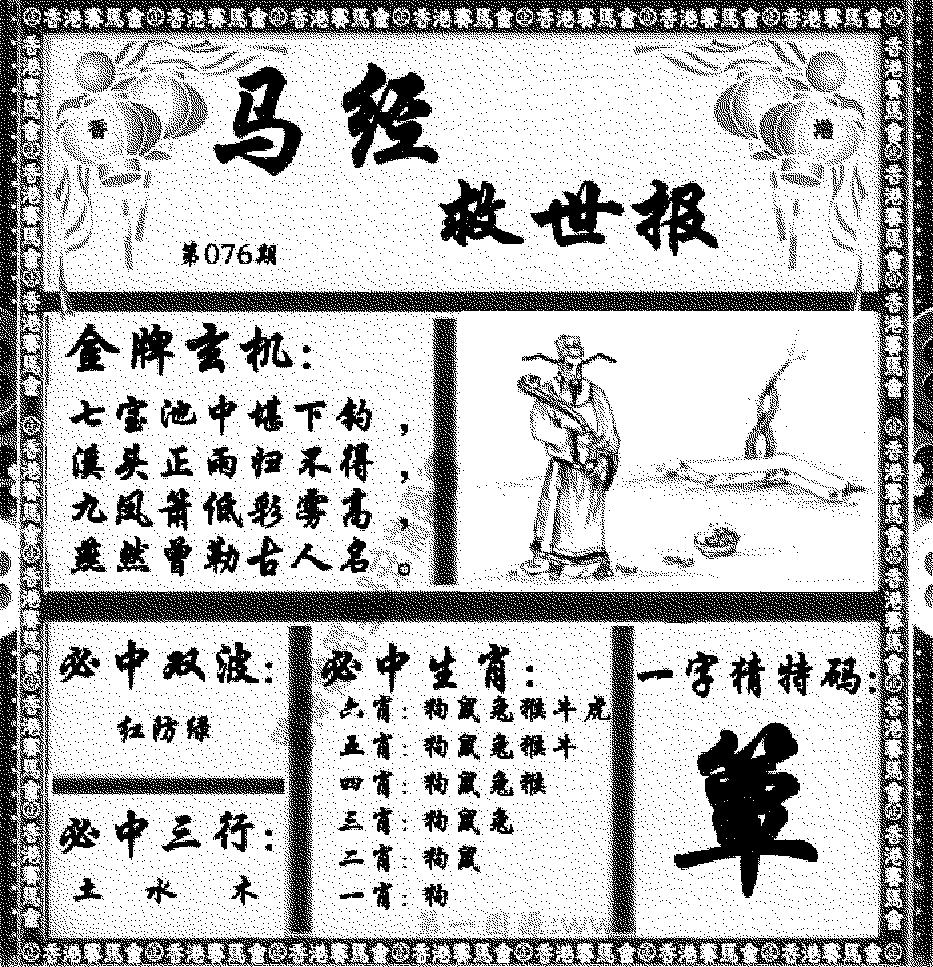 香港賽馬會 香港賽馬會 香港賽馬會 香港賽馬會 香港賽馬會 香港賽馬會 香港賽馬會
香
港
马经
救世报
第076期
金牌玄机:
七宝池中堪下钓，
溪头正雨归不得，
九凤箫低彩雾高，
燕然曾勒古人名。
必中双波:
红防绿
必中三行:
土 水 木
必中生肖:
六肖: 狗鼠兔猴牛虎
五肖: 狗鼠兔猴牛
四肖: 狗鼠兔猴
三肖: 狗鼠兔
二肖: 狗鼠
一肖: 狗
一字精特码:
单
香港賽馬會 香港賽馬會 香港賽馬會 香港賽馬會 香港賽馬會 香港賽馬會 香港賽馬會